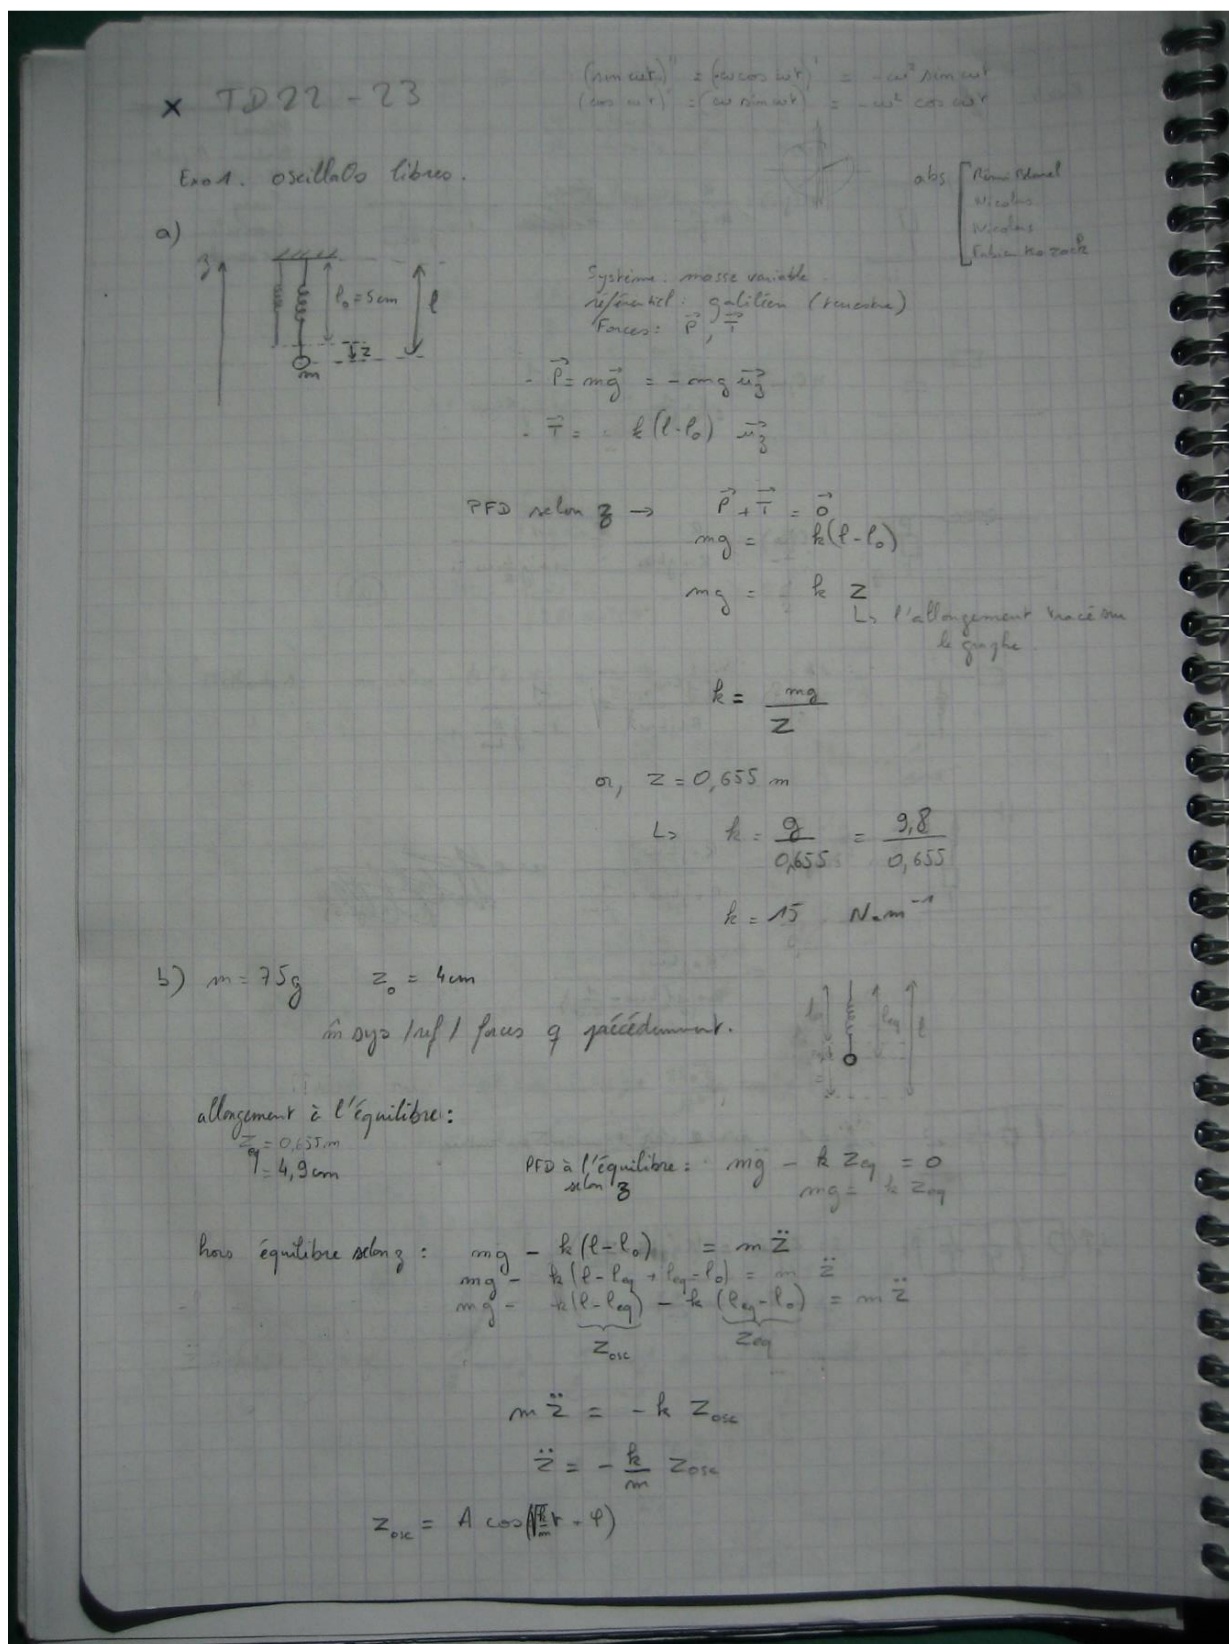 (sin ωt)'' = (ω cos ωt)' = -ω² sin ωt
(cos ωt)' = (ω sin ωt) = -ω² cos ωt
x TD22-23
Exo 1. oscillaO libres.
abs
Nicolas
Nicolas
a)
z
l₀ = 5cm
l
z
m
Système. masse variable
référentiel: galiléen (terrestre)
Forces: P⃗, T⃗
- P⃗ = mg⃗ = -mg u⃗z
- T⃗ = k(l-l₀) u⃗z
PFD selon z → P⃗ + T⃗ = 0⃗
mg = k(l-l₀)
mg = k z
↳ l'allongement tracé sur
le graphe.
k = mg / z
or, z = 0,655 m
↳ k = g / 0,655 = 9,8 / 0,655
k = 15 N.m⁻¹
b) m = 75g z₀ = 4cm
m̂ sys / ref / forces q précédemment.
l₀ leq l
allongement à l'équilibre:
zeq = 0,655m
= 4,9cm
PFD à l'équilibre: mg - k zeq = 0
selon z
mg = k zeq
hors équilibre selon z: mg - k(l-l₀) = m z̈
mg - k(l-leq + leq-l₀) = m z̈
mg - k(l-leq) - k(leq-l₀) = m z̈
zosc zeq
m z̈ = -k zosc
z̈ = - k/m zosc
zosc = A cos(√(k/m) t - φ)